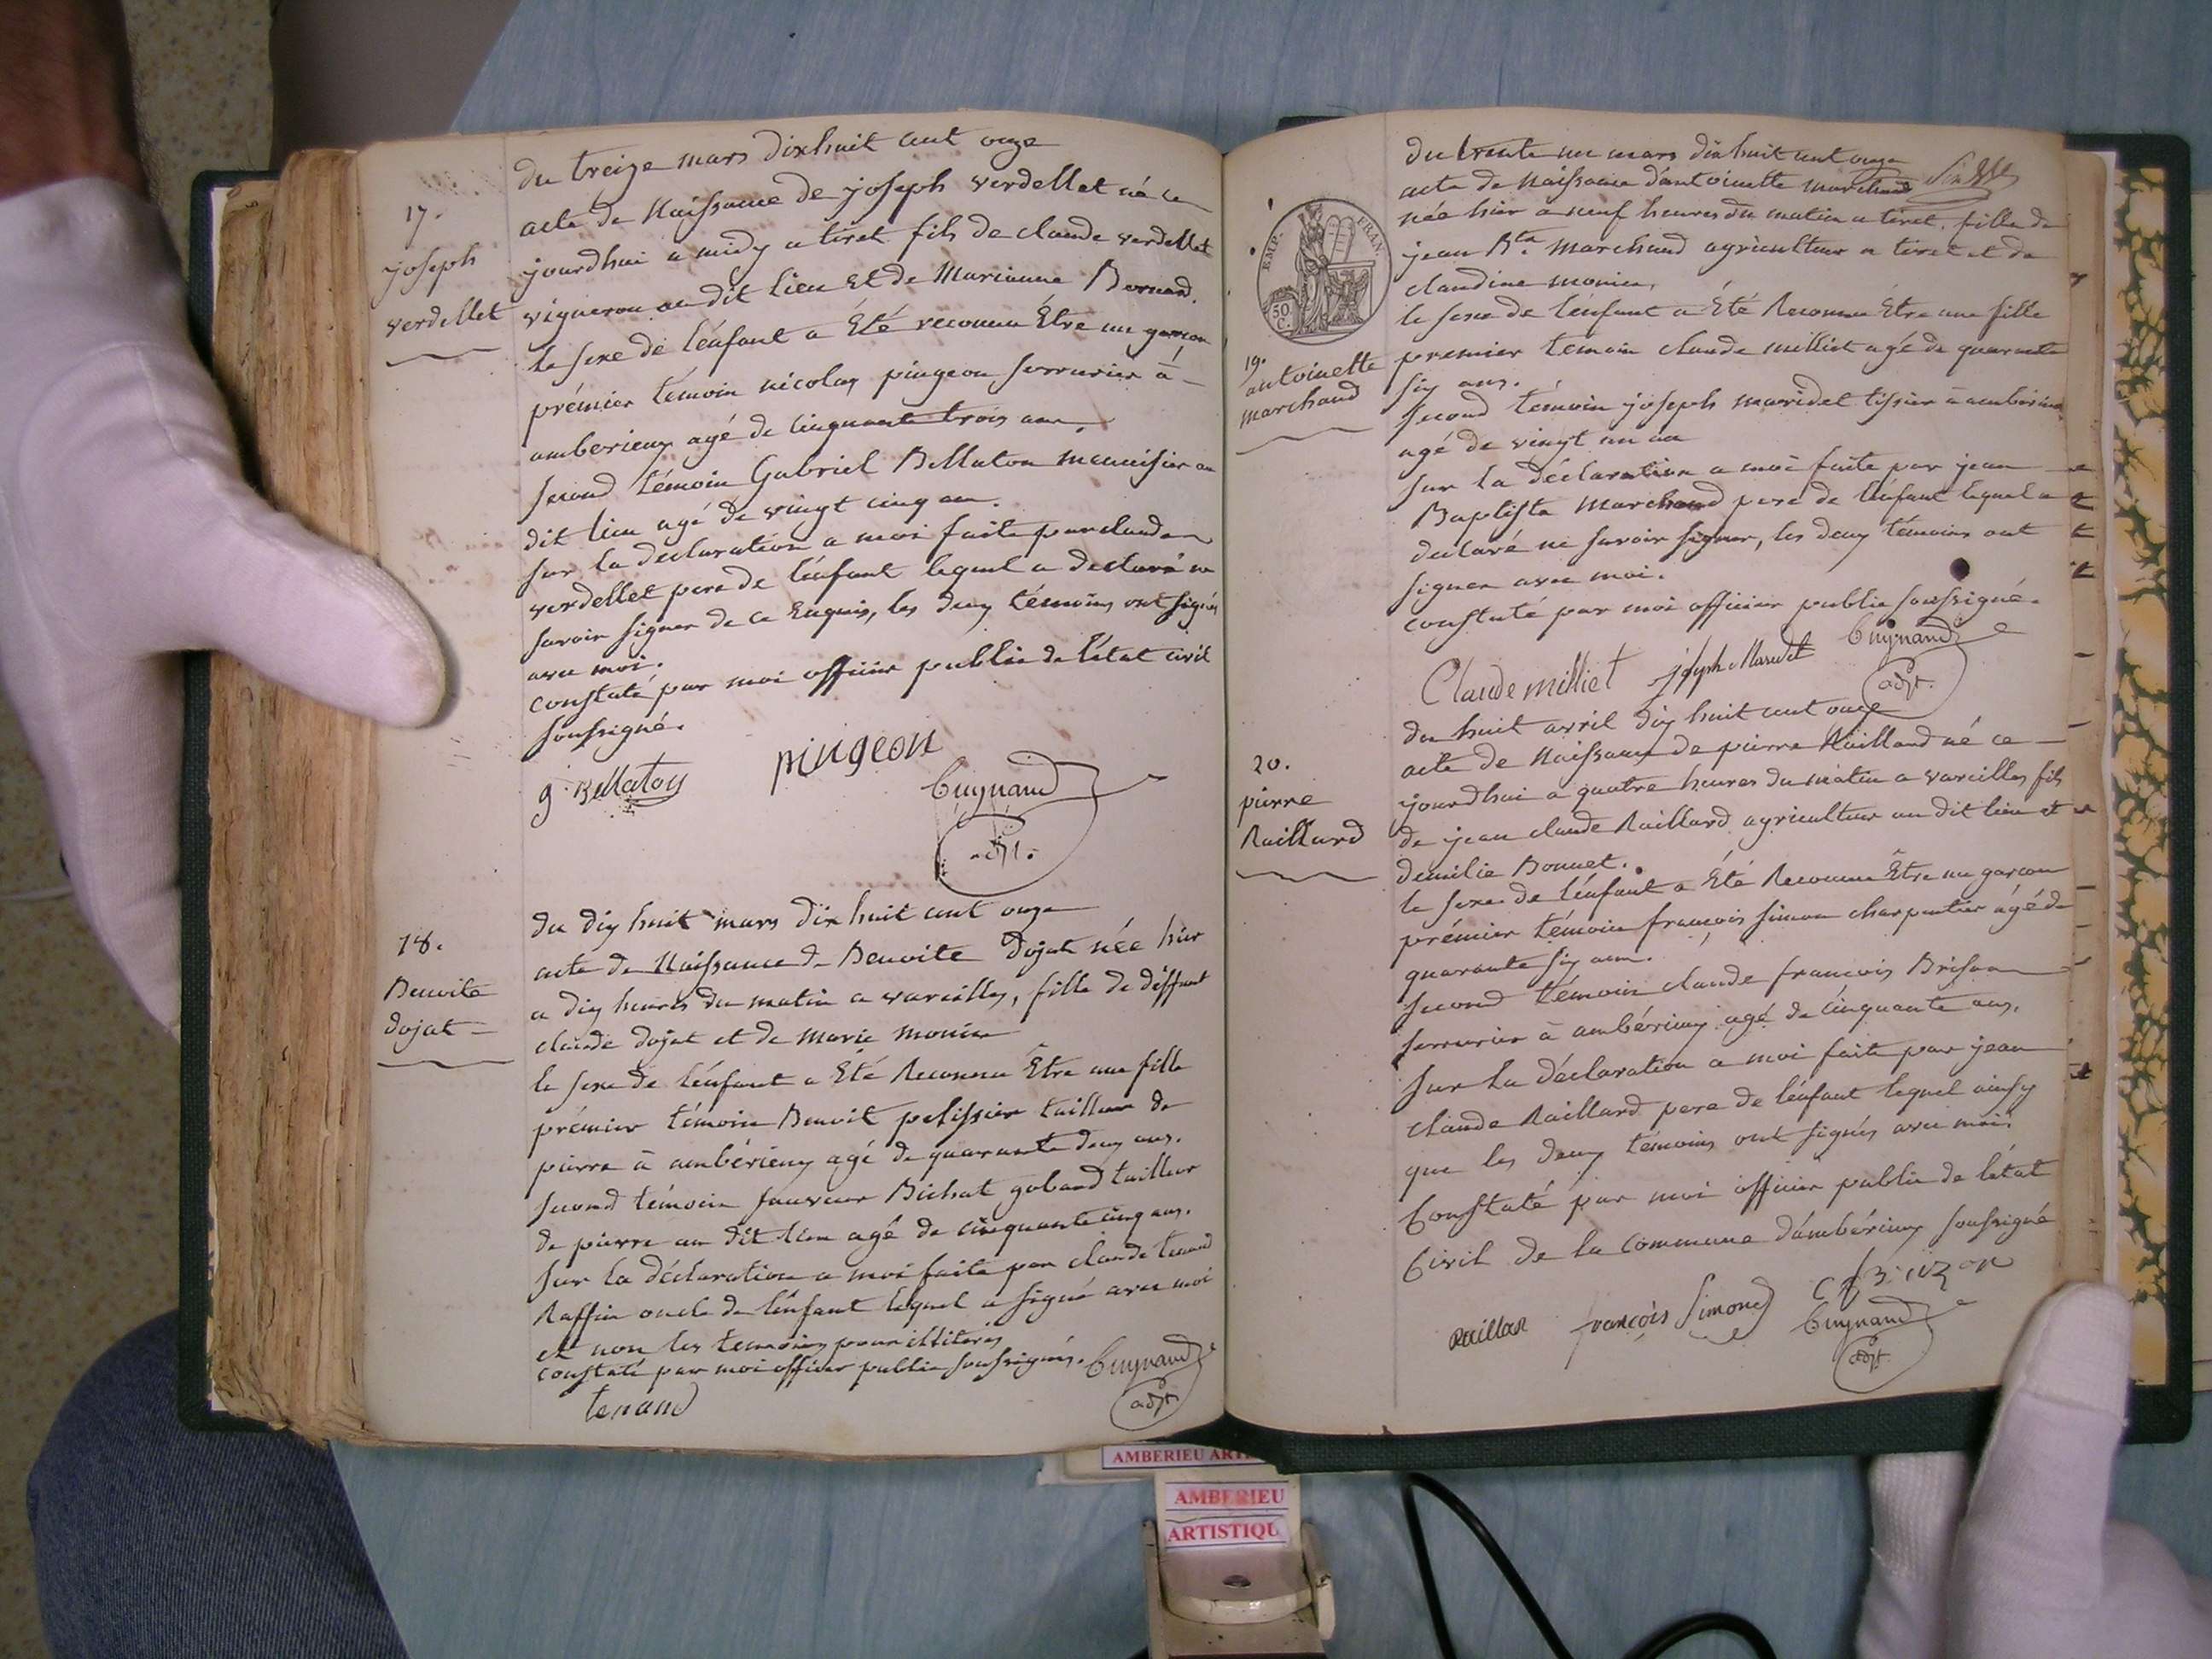 du treize mars dixhuit cent onze
17.
joseph
verdellet
acte de Naissance de joseph verdellet né ce
jourdhui a midy a tiret fils de claude verdellet
vigneron au dit lieu et de Marianne Bernard.
le sexe de l'énfant a Eté reconnu Être un garçon
prémier témoin nicolas pingeon serrurier à
amberieux agé de cinquante trois ans,
second témoin Gabriel Bellaton menuisier au
dit lieu agé de vingt cinq an.
sur la declaration a moi faite par claude
verdellet pere de l'énfant lequel a declaré ne
savoir signer de ce Enquis, les deux témoins ont signés
avec moi.
constaté par moi officier public de l'état civil
soussigné.
g. Bellaton
pingeon
Cuynand
adjt.
18.
Benoite
dojat
du dix huit mars dix huit cent onze
acte de Naissance de Benoite Dojat née hier
a dix heures du matin a vareilles, fille de deffunt
claude dojat et de marie monier
le sexe de l'énfant a Eté Reconnu Être une fille
prémier témoin Benoit pelissier tailleur de
pierre à ambérieux agé de quarante deux ans.
second témoin sauveur Bichat gobard tailleur
de pierre au dit lieu agé de cinquante cinq ans.
sur la déclaration a moi faite par claude tenand
Raffin oncle de l'énfant lequel a signé avec moi
et non les temoins pour illiterés
constaté par moi officier public soussignés. Cuynand
tenand
adjt.
EMP. FRAN.
50 C.
du trente un mars dix huit cent onze
acte de Naissance d'antoinette marchand
née hier a neuf heures du matin a tiret, fille de
jean Bte. marchand agriculteur a tiret et de
claudine monier,
le sexe de l'énfant a Eté Reconnu Être une fille
19.
antoinette
marchand
premier témoin claude milliet agé de quarante
six ans.
second témoin joseph maridet tissier à amberieux
agé de vingt un an
sur la déclaration a moi faite par jean
Baptiste Marchand pere de l'énfant lequel a
declaré ne savoir signer, les deux témoins ont
signer avec moi.
constaté par moi officier public soussigné.
Claude milliet
joseph Maridet
Cuynand
adjt.
20.
pierre
Raillard
du huit avril dix huit cent onze
acte de Naissance de pierre Raillard né ce
jourdhui a quatre heures du matin a vareilles fils
de jean claude Raillard agriculteur au dit lieu et
d'emilie Bonnet.
le sexe de l'énfant a Eté Reconnu Être un garçon
prémier témoin françois simon charpentier âgé de
quarante six ans.
second témoin claude francois Brison
serrurier à ambérieux agé de cinquante ans.
sur la déclaration a moi faite par jean
claude Raillard pere de l'énfant lequel ainsy
que les deux témoins ont signés avec moi.
Constaté par moi officier public de l'état
Civil de la commune d'ambérieux soussigné
Raillar
françois Simond
Cuynand
adjt.
AMBERIEU
AMBERIEU
ARTISTIQU